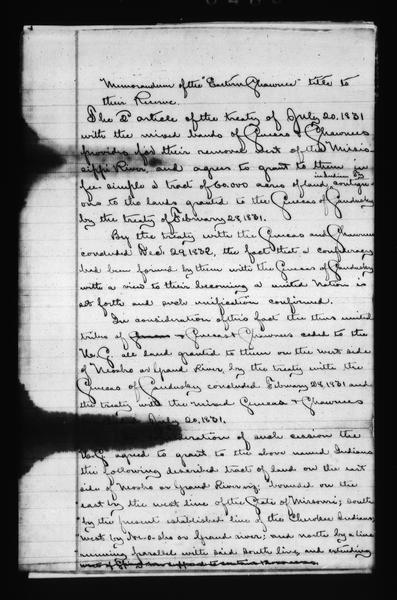 Memorandum of the "Eastern Shawnee" title to
their Reserve.
The 2d article of the treaty of July 20, 1831
with the mixed bands of Senecas & Shawnees
provides for their removal west of the Missis-
sippi River, and agrees to grant to them in
fee simple a tract of 60.000 acres of land, contigu-
ous to the lands granted to the Senecas of Sandusky
by the treaty of February 28, 1831.
By the treaty with the Senecas and Shawnees
concluded Dec. 29, 1832, the fact that a confederacy
had been formed by them with the Senecas of Sandusky
with a view to their becoming a united Nation is
set forth and such unification confirmed.
In consideration of this fact the thus united
tribes of Senecas & Shawnees ceded to the
U.S. all land granted to them on the west side
of Neosho or Grand River, by the treaty with the
Senecas of Sandusky concluded February 28, 1831 and
the treaty with the mixed Senecas & Shawnees
July 20, 1831.
of such cession the
U.S. agreed to grant to the above named Indians
the following described tract of land on the east
side of Neosho or Grand River viz: bounded on the
east by the west line of the State of Missouri; south
by the present established line of the Cherokee Indians;
west by Neosho or Grand river; and north by a line
running parallel with said south line, and extending